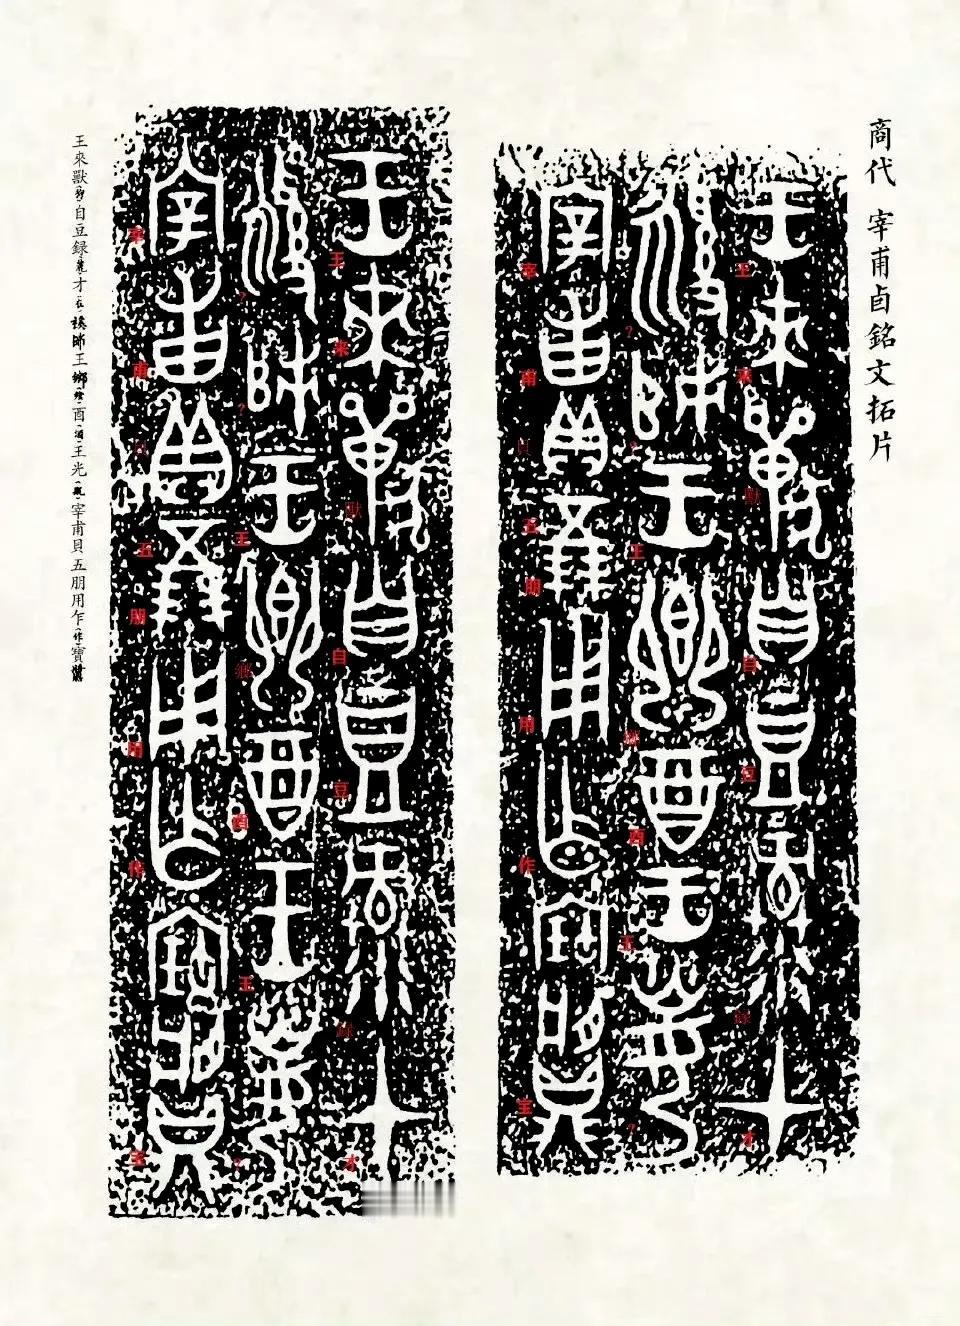 商代 宰甫卣銘文拓片
王來獸自豆録才
王鄉酉王光
宰甫貝五朋用作寶
王來獸自豆録才
王鄉酉王光
宰甫貝五朋用作寶
王來獸(狩)自豆録(麓)才(在)王鄉(饗)酉(酒)王光(貺)宰甫貝五朋用乍(作)寶